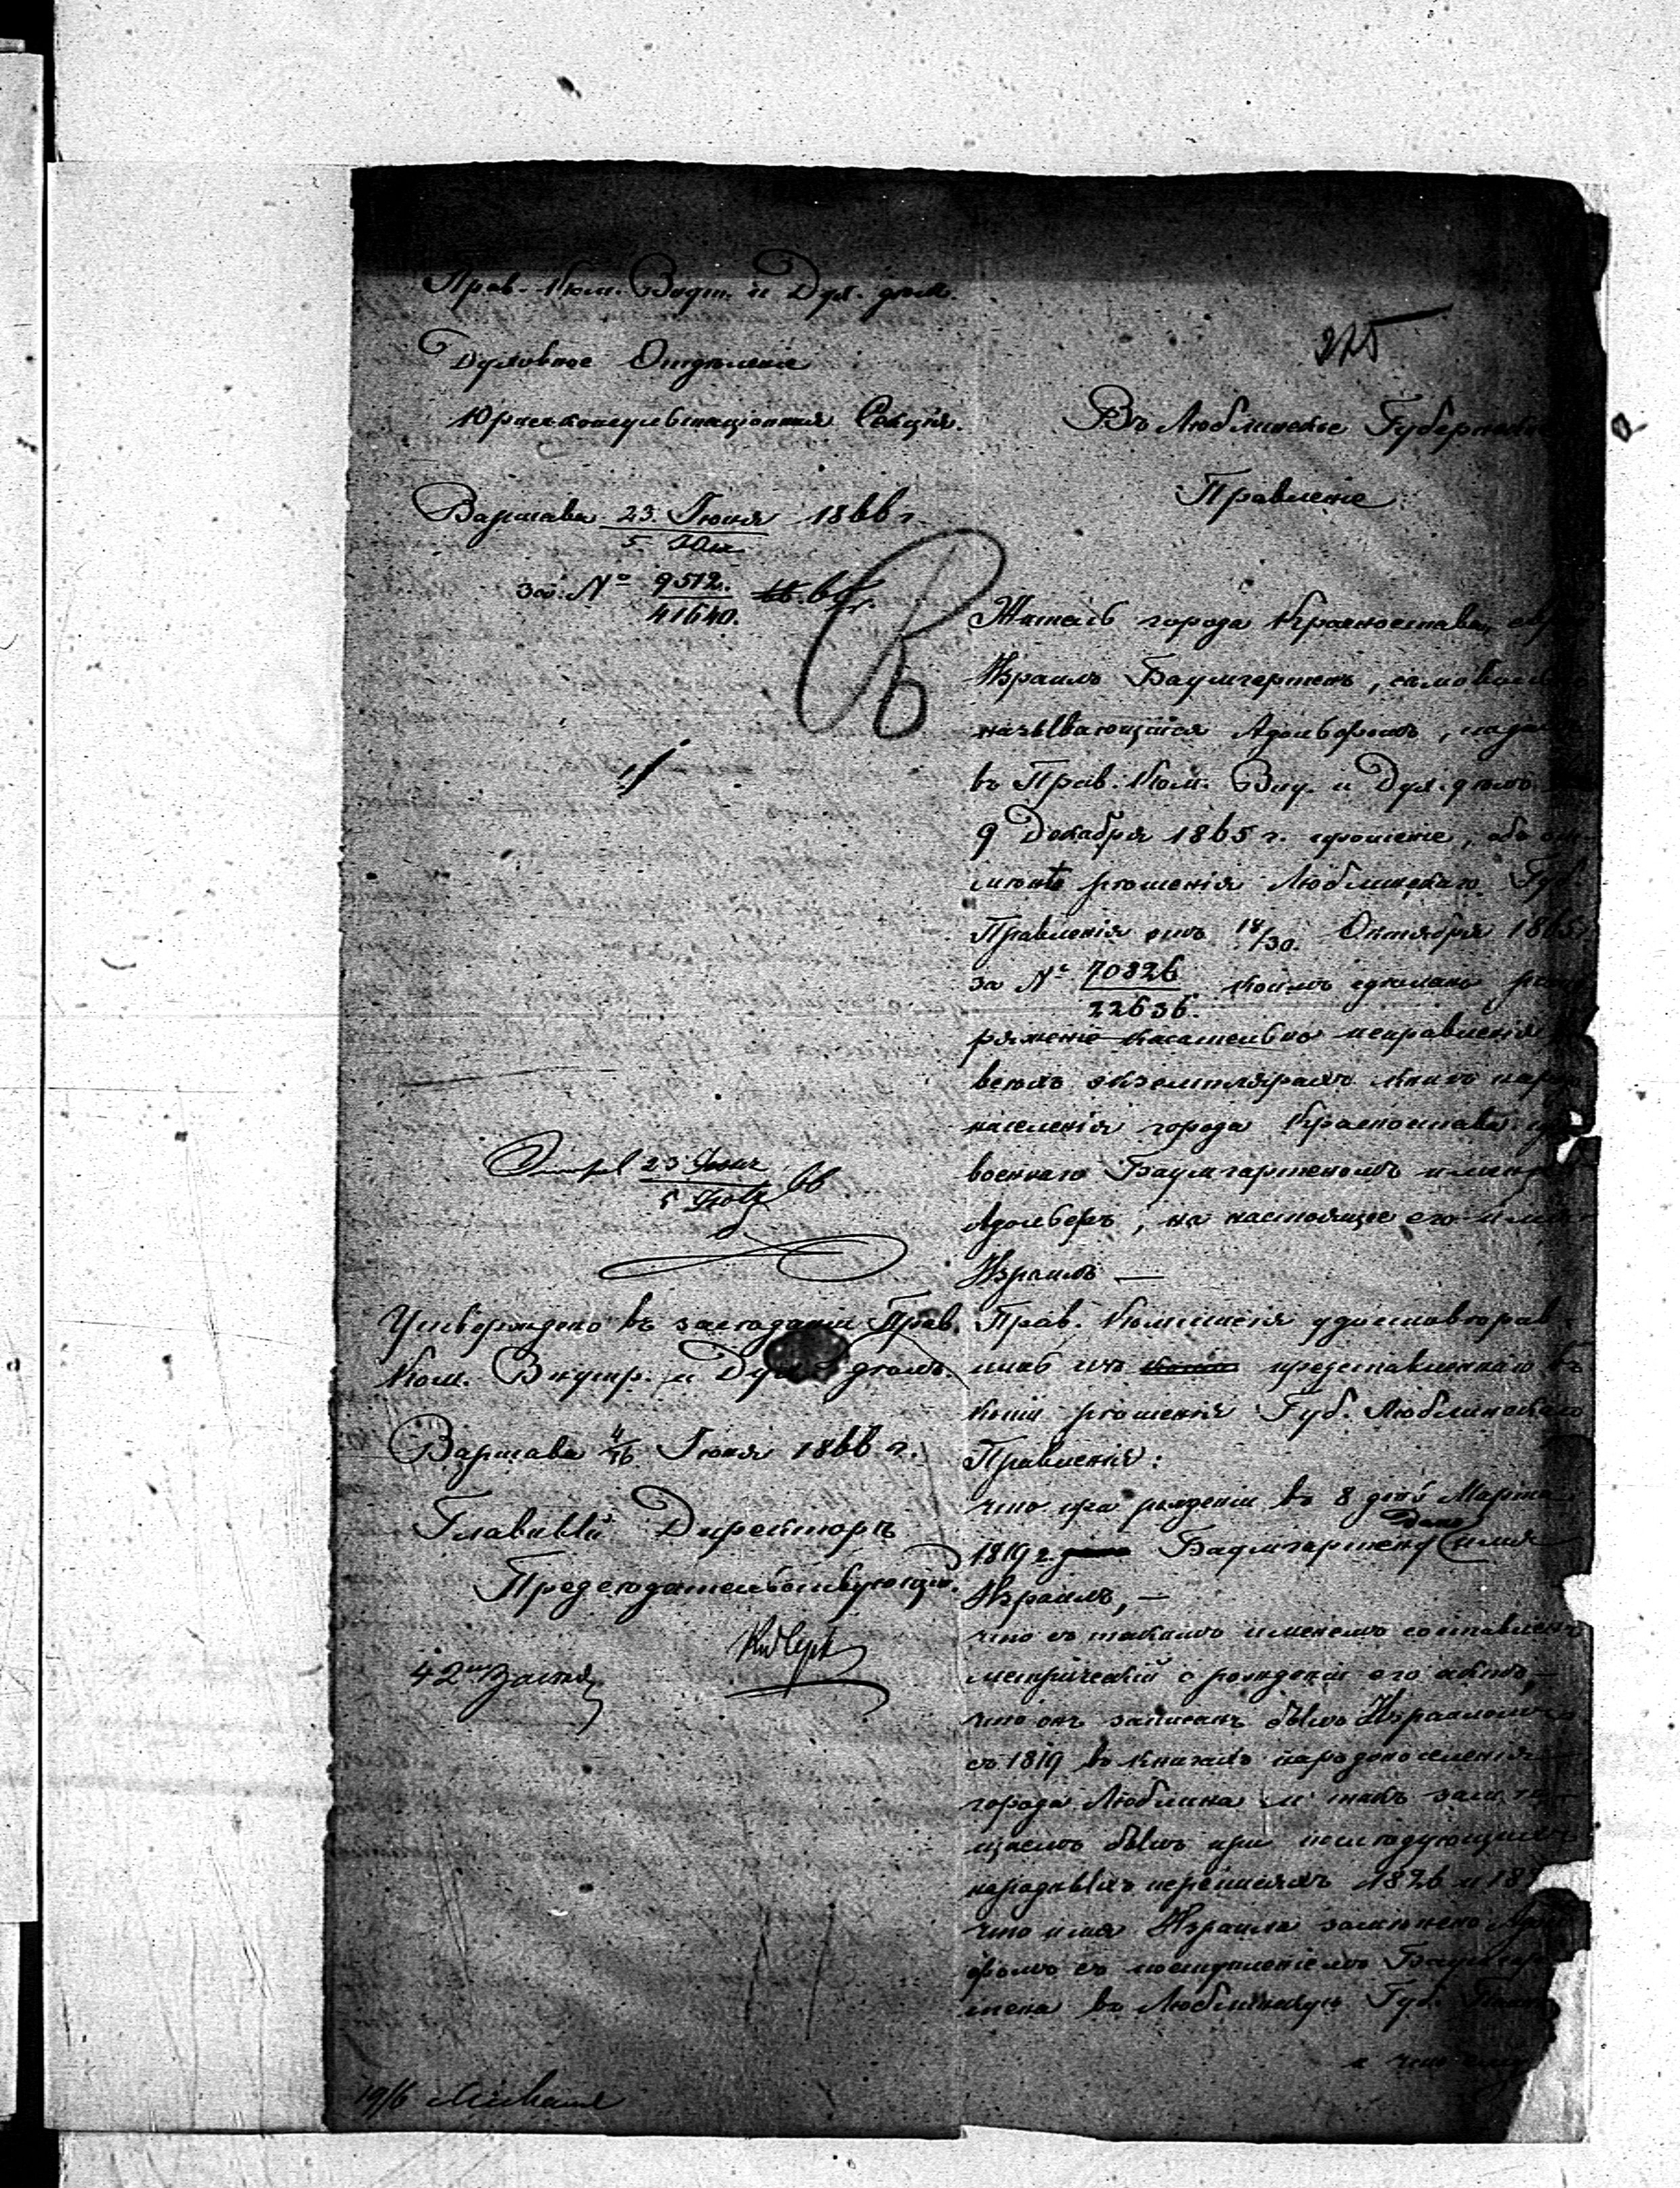 Прав. Ком. Внут. и Дух. дѣлъ.
Духовное Отдѣленіе
Юрисконсультаціонная Секція.
Варшава 23 Іюня 1866 г.
5 Іюл
за № 9512.
41640.
Утверждено въ засѣданіи Прав.
Ком. Внутр. и Дух. дѣлъ.
Варшава 4/16 Іюня 1866 г.
Главный Директоръ
Предсѣдательствующій.
275
Въ Люблинское Губернское
Правленіе
Житель города Красностава,
Израиль Баумгартенъ, самовольно
называющійся Адольфомъ, подалъ
въ Прав. Ком. Вну. и Дух. дѣлъ
9 Декабря 1865 г. прошеніе, объ от
мѣнѣ рѣшенія Люблинскаго Губ.
Правленія отъ 18/30 Октября 1865
за № 70826
22636.
коимъ сдѣлано распо
ряженіе касательно исправленія
всѣхъ экземплярахъ книгъ народо
населенія города Красностава
военнаго Баумгартеномъ имени
Адольфъ, на настоящее его имя
Израиль —
Прав. Коммисія удостовѣрив
шись изъ представленнаго въ
копіи рѣшенія Губ. Люблинскаго
Правленія:
что при рожденіи въ 8 день Марта
1819 г. дано Баумгартену имя
Израиль, —
что съ такимъ именемъ составленъ
метрическій о рожденіи его актъ, —
что онъ записанъ былъ Израилемъ
съ 1819 въ книгахъ народонаселенія
города Люблина и такъ
былъ при послѣдующихъ
народныхъ переписяхъ 1826 и
что имя Израиль замѣнено Адоль
фомъ съ поступленіемъ Баумгар
тена въ Люблинскую Губ.
и что